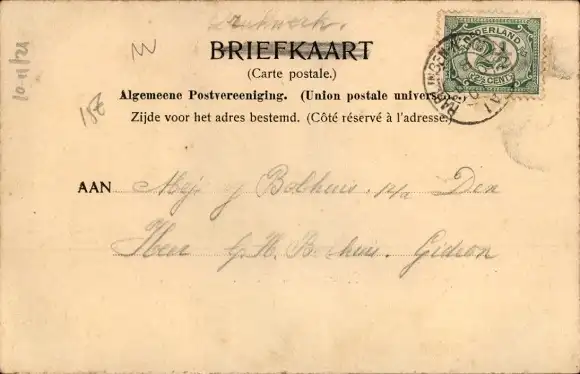 Drukwerk.
BRIEFKAART
(Carte postale.)
Algemeene Postvereeniging. (Union postale univers
Zijde voor het adres bestemd. (Côté réservé à l'adresse.)
NEDERLAND
2½
CENT
10-11/21
15E
AAN Mej Bolhuis. p/a Den
Heer H. Bolhuis. Gideon